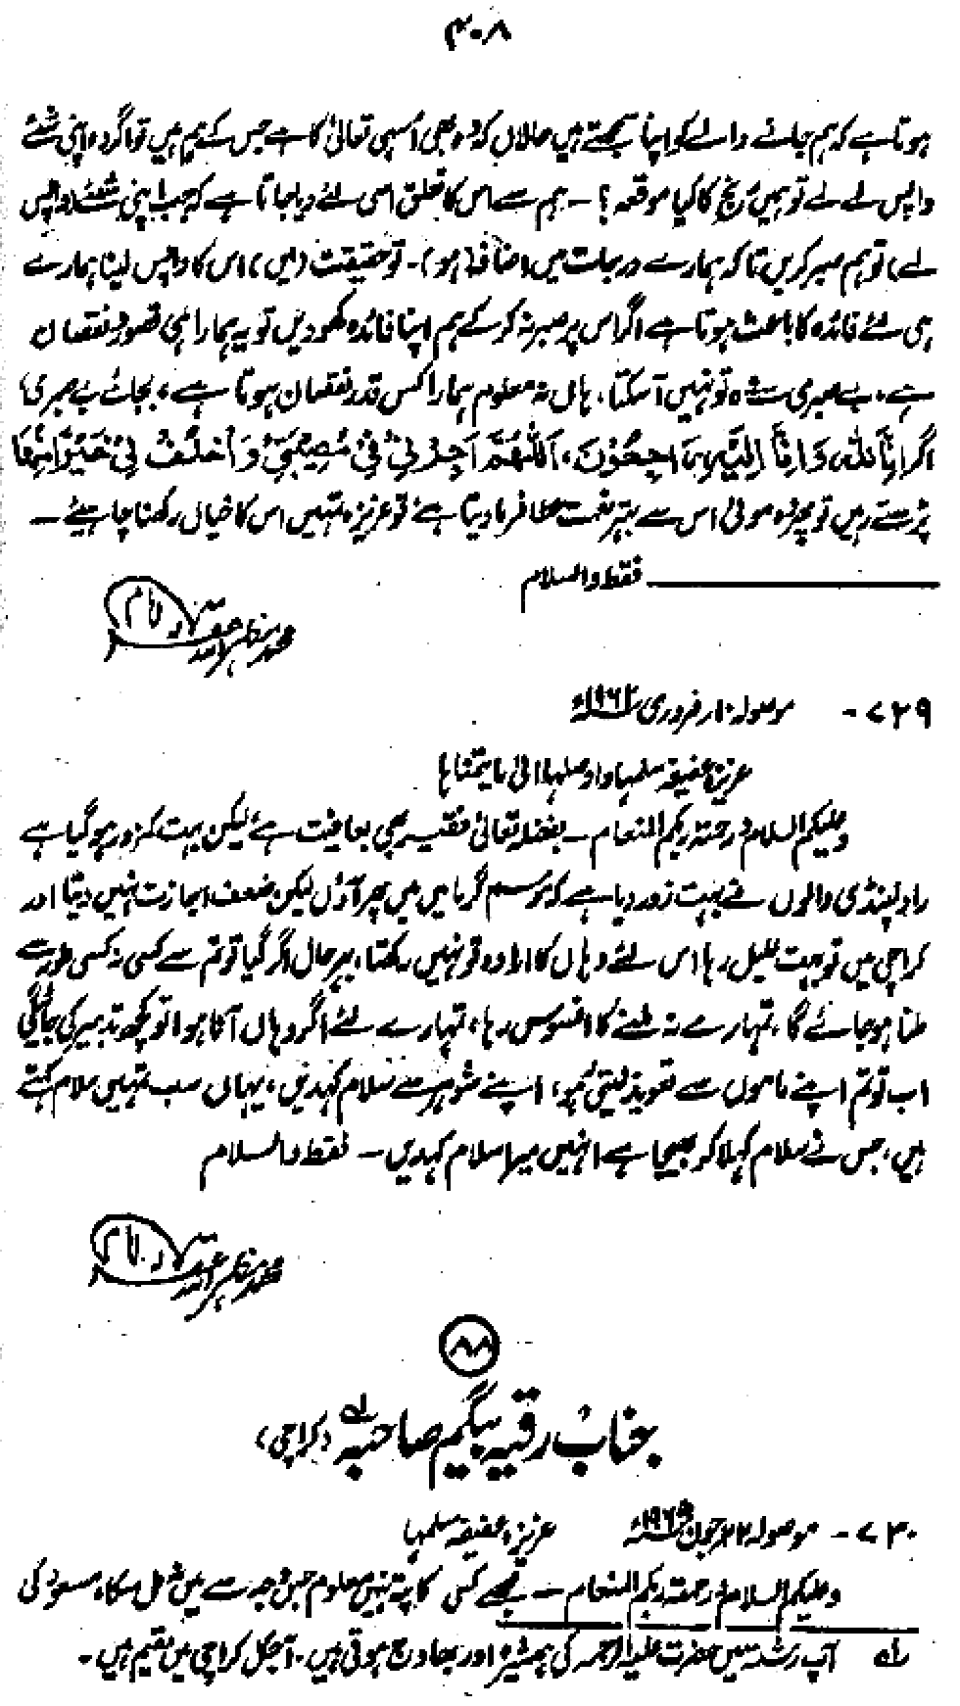 ۴۰۸
ہوتا ہے کہ ہم جانے والے کو اپنا سمجھتے ہیں حالاں کہ وہ بھی اُسی تعالیٰ کا ہے جس کے ہم ہیں تو اگر وہ اپنی شئے
واپس لے لے تو ہمیں رنج کا کیا موقعہ؟ ۔ ہم سے اس کا تعلق اسی لئے دیا جاتا ہے کہ جب اپنی شئے (واپس
لے) تو ہم صبر کریں تاکہ ہمارے درجات میں (اضافہ ہو)۔ تو حقیقت (میں) اس کا واپس لینا ہمارے
ہی لئے فائدہ کا باعث ہوتا ہے اگر اس پر صبر نہ کر کے ہم اپنا فائدہ کھو دیں تو یہ ہمارا ہی قصور و نقصان
ہے، بے صبری سے وہ تو نہیں آسکتا، ہاں نہ معلوم ہمارا کس قدر نقصان ہوتا ہے، بجائے بے صبری کے
اگر اِنَّا لِلّٰہِ وَاِنَّا اِلَیْہِ رَاجِعُوْنَ، اَللّٰھُمَّ اَجِرْنِیْ فِیْ مُصِیْبَتِیْ وَاَخْلُفْ لِیْ خَیْرًا مِّنْھَا
پڑھتے رہیں تو پھر وہ مولیٰ اس سے بہتر نعمت عطا فرما دیتا ہے تو عزیزہ تمہیں اس کا خیال رکھنا چاہیئے ۔
فقط والسلام
محمد مظہر اللہ
۷۲۹ ۔ موصولہ ۱۰ فروری ۱۹۶۲ء
عزیزہ عفیفہ سلمہا واوصلہا الیٰ ما یتمناہا
وعلیکم السلام ورحمۃ ربکم المنعام ۔ بفضلہ تعالیٰ فقیر بھی بعافیت ہے، لیکن بہت کمزور ہو گیا ہے
راولپنڈی والوں نے بہت زور دیا ہے کہ موسم گرما میں میں پھر آؤں لیکن ضعف اجازت نہیں دیتا اور
کراچی میں تو بہت علیل رہا اس لئے وہاں کا ارادہ تو نہیں رکھتا، بہر حال اگر گیا تو تم سے کسی نہ کسی طور سے
ملنا ہو جائے گا، تمہارے نہ ملنے کا افسوس رہا، تمہارے لئے اگر وہاں آنا ہوا تو کچھ تدبیر کی جائیگی
اب تو تم اپنے ماموں سے تعویذ لیتی رہو، اپنے شوہر سے سلام کہدیں، یہاں سب تمہیں سلام کہتے
ہیں، جس نے سلام کہلا کر بھیجا ہے انہیں میرا سلام کہدیں ۔ فقط والسلام
محمد مظہر اللہ
۸۸
جناب رقیہ بیگم صاحبہ لہ (کراچی)
۷۳۰ ۔ موصولہ ۲۲ جون ۱۹۶۵ء عزیزہ عفیفہ سلمہا
وعلیکم السلام ورحمۃ ربکم المنعام ۔ مجھے کسی کا پتہ نہیں معلوم جس وجہ سے میں نہ مل سکا، مسعود کی
لہ آپ رشتہ میں حضرت علیہ الرحمہ کی ہمشیرہ اور بھاوج ہوتی ہیں۔ آجکل کراچی میں مقیم ہیں۔